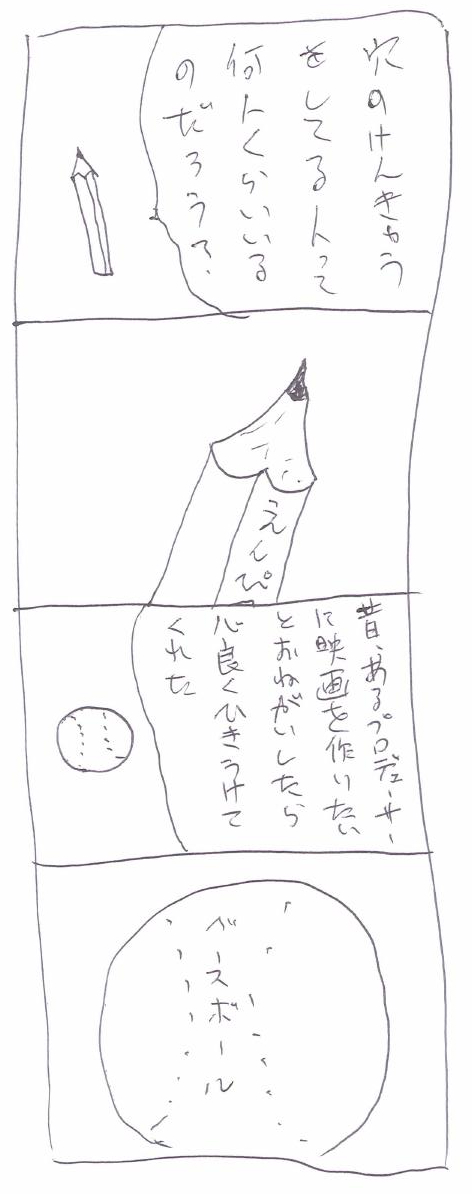 穴のけんきゅう
をしてる人って
何人くらいいる
のだろう?
えんぴ
昔、あるプロデューサー
に映画を作りたい
とおねがいしたら
心良くひきうけて
くれた
ベースボール